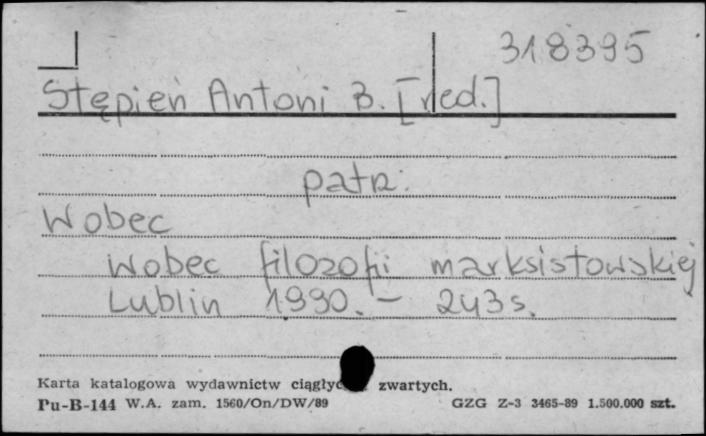 318395
Stępień Antoni B. [red.]
patrz:
Wobec
Wobec filozofii marksistowskiej
Lublin 1990. – 243 s.
Karta katalogowa wydawnictw zwartych.
Pu-B-144 W.A. zam. 1560/On/DW/89 GZG Z-3 3465-89 1.500.000 szt.